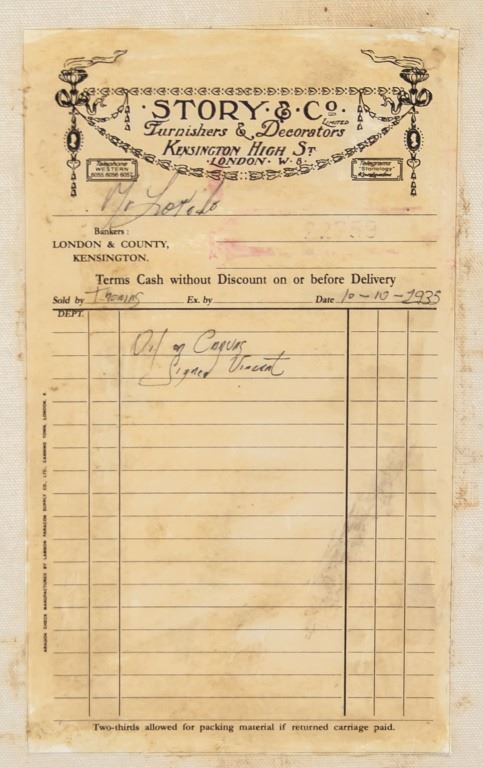 STORY & Co. LIMITED
Furnishers & Decorators
KENSINGTON HIGH ST
LONDON · W · 8 ·
Telephone
WESTERN
Telegrams
Kensington
Mr
Bankers:
LONDON & COUNTY,
KENSINGTON.
Terms Cash without Discount on or before Delivery
Sold by Thomas Ex. by Date 10-10-1935
DEPT.
Oil on Canvas
Signed Vincent
PARAGON CHECK MANUFACTURED BY LAMSON PARAGON SUPPLY CO. LTD. CANNING TOWN, LONDON, E.
Two-thirds allowed for packing material if returned carriage paid.